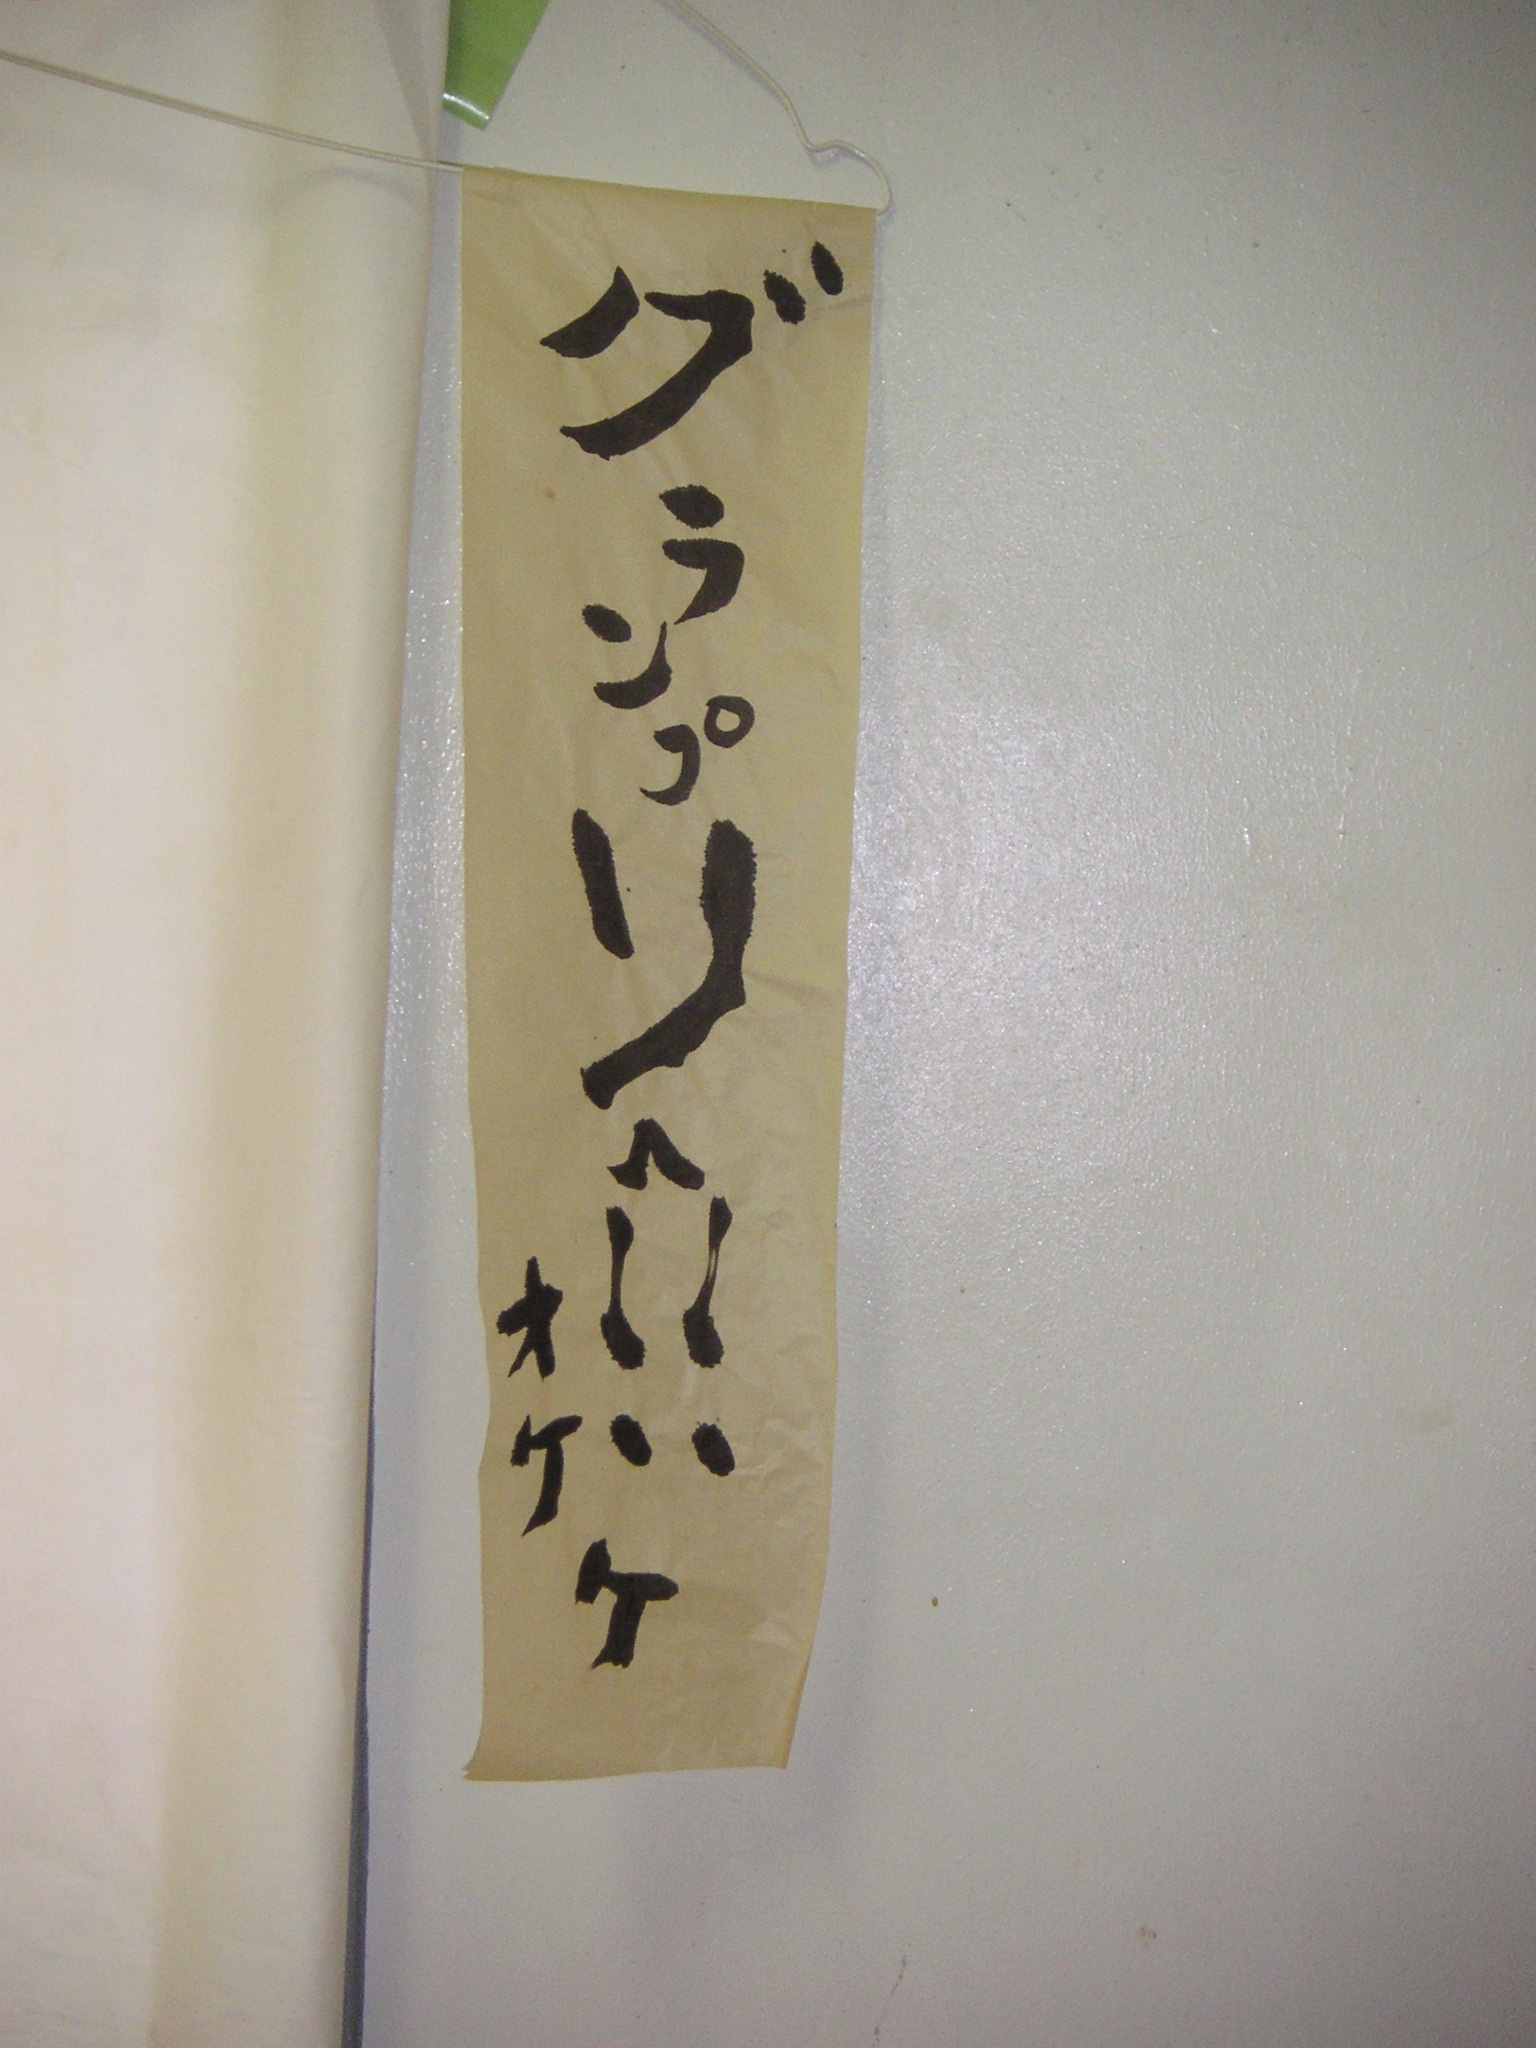 グランプリへ!!
オケケ